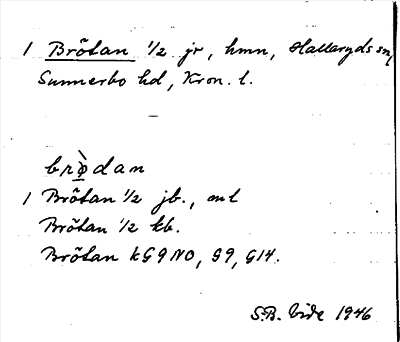 1 Brötan 1/2 jr, hmn, Hallaryds sn,
Sunnerbo hd, Kron. l.
brø̀dan
1 Brötan 1/2 jb., mt
Brötan 1/2 kb.
Brötan kG9NO, G9, G14.
S.B. Vide 1946